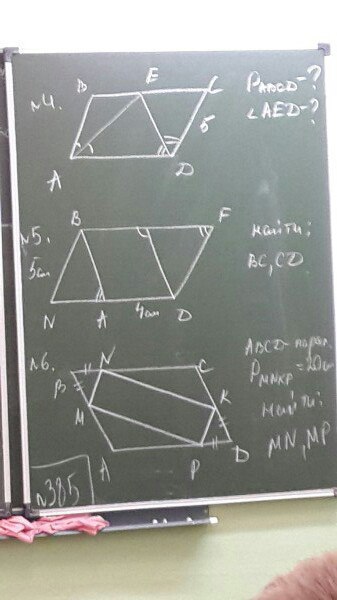 N4. B E C
5
A D
P ABCD-?
∠AED-?
N5. B F
5см
N A 4см D
найти:
BC, CD
N6. N C
B
M K
A P D
ABCD-парал.
P MNKP =20см
найти:
MN, MP
N385